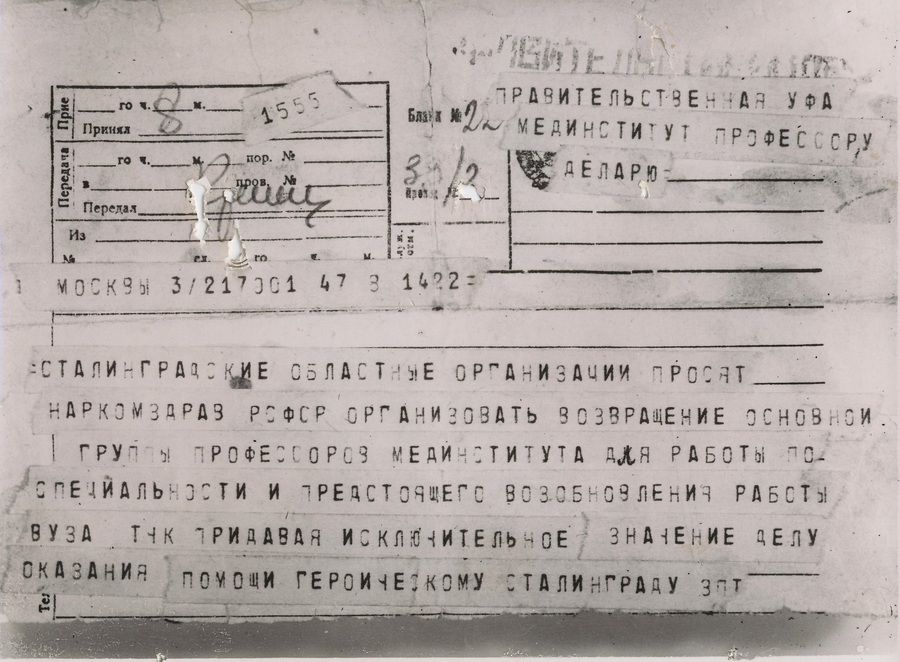 Прие
го ч. 8 м.
Принял
1555
Передача
го ч. м. пор. №
в пров. №
Передал
Из
№ сл. го ч. м.
Бланк №
ПРАВИТЕЛЬСТВЕННАЯ УФА
МЕДИНСТИТУТ ПРОФЕССОРУ
ДЕЛАРЮ=
МОСКВЫ 3/217001 47 8 1422=
=СТАЛИНГРАДСКИЕ ОБЛАСТНЫЕ ОРГАНИЗАЦИИ ПРОСЯТ
НАРКОМЗДРАВ РСФСР ОРГАНИЗОВАТЬ ВОЗВРАЩЕНИЕ ОСНОВНОЙ
ГРУППЫ ПРОФЕССОРОВ МЕДИНСТИТУТА ДЛЯ РАБОТЫ ПО-
СПЕЦИАЛЬНОСТИ И ПРЕДСТОЯЩЕГО ВОЗОБНОВЛЕНИЯ РАБОТЫ
ВУЗА ТЧК ПРИДАВАЯ ИСКЛЮЧИТЕЛЬНОЕ ЗНАЧЕНИЕ ДЕЛУ
ОКАЗАНИЯ ПОМОЩИ ГЕРОИЧЕСКОМУ СТАЛИНГРАДУ ЗПТ